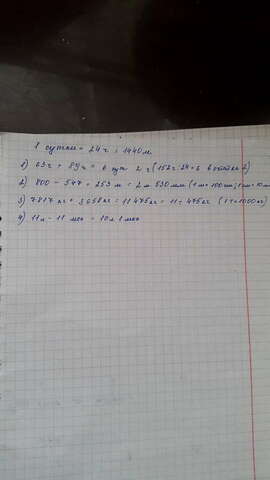 1 сутки = 24 ч = 1440 м.
1) 63 ч + 89 ч = 6 сут 2 ч (152 : 24 = 6
2) 800 - 547 = 253 м = 2 м 530 мм (1 м = 100
3) 7817 кг + 3658 кг = 11 475 кг = 11 т 475 кг (1 т = 1000 кг)
4) 11 л - 11 мес = 10 л 1 мес